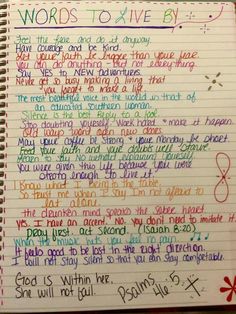 WORDS TO LIVE BY
Feel the fear and do it anyway.
Have courage and be kind.
Let your faith be bigger than your fear.
You can do anything - but not everything.
Say YES to NEW adventures.
Never get so busy making a living that
you forget to make a life.
The most beautiful voice in the world is that of
an educated Southern woman.
Silence is the best reply to a fool.
Stop doubting yourself. Work hard & make it happen.
Old ways won't open new doors.
May your coffee be strong & your Monday be short.
Feed your faith and your doubts will starve.
Learn to say No without explaining yourself.
You were given this life because you were
strong enough to live it.
I know what I bring to the table
So trust me when I say I'm not afraid to
eat alone.
The drunken mind speaks the sober heart.
Yes, I have an accent. No, you don't need to imitate it.
Pray first, act second.
When the music hits you feel no pain.
It feels good to be lost in the right direction.
I will not stay silent so that you can stay comfortable.
God is within her,
She will not fail.
Psalms
46:5